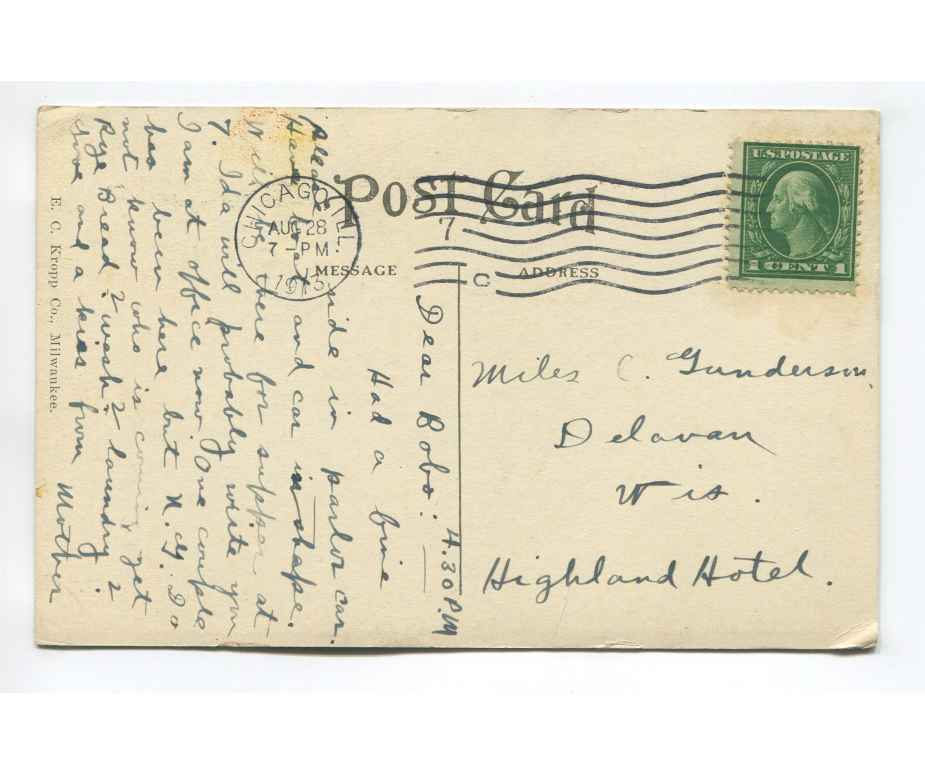 POST CARD
MESSAGE
ADDRESS
U.S. POSTAGE
1 CENT 1
CHICAGO, ILL.
AUG 28
7 - PM
1915
7
C
4.30 P.M
Dear Bobo:
Had a fine
ride in parlor car.
Have boat and car in shape.
Will be there for supper at
7. Ida will probably write you
I am at office now. One couple
has been here but N.G. Do
not know who is coming yet
Rye Bread 2 wash 2 laundry 2
Give and a kiss from Mother
Miles C. Gunderson.
Delavan
Wis.
Highland Hotel.
E. C. Kropp Co., Milwaukee.